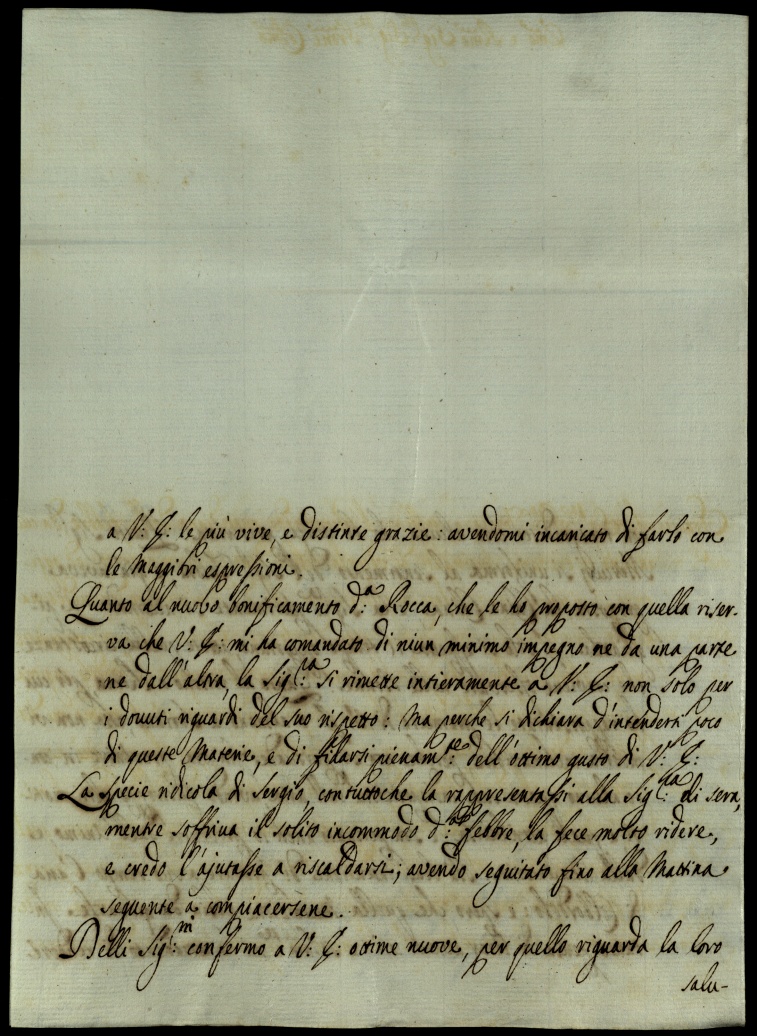 a V: S: le più vive, e distinte grazie: avendomi incaricato di farlo con
le maggiori espressioni.
Quanto al nuovo bonificamento d:ᵃ Rocca, che le ho proposto con quella riser-
va che V: S: mi ha comandato di niun minimo impegno ne da una parte
ne dall'altra, la Sig:ʳᵃ si rimette intieramente a V: S: non solo per
i dovuti riguardi del suo rispetto: ma perche si dichiara d'intendersi poco
di queste Materie, e di fidarsi pienam:ᵗᵉ dell'ottimo gusto di V: S:
La specie ridicola di Sergio, contuttoche la rappresentassi alla Sig:ʳᵃ di sera,
mentre soffriva il solito incommodo d: febbre, la fece molto ridere,
e credo l'ajutasse a riscaldarsi; avendo seguitato fino alla Mattina
seguente a compiacersene.
Delli Sig:ʳⁱ confermo a V: S: ottime nuove, per quello riguarda la loro
salu-